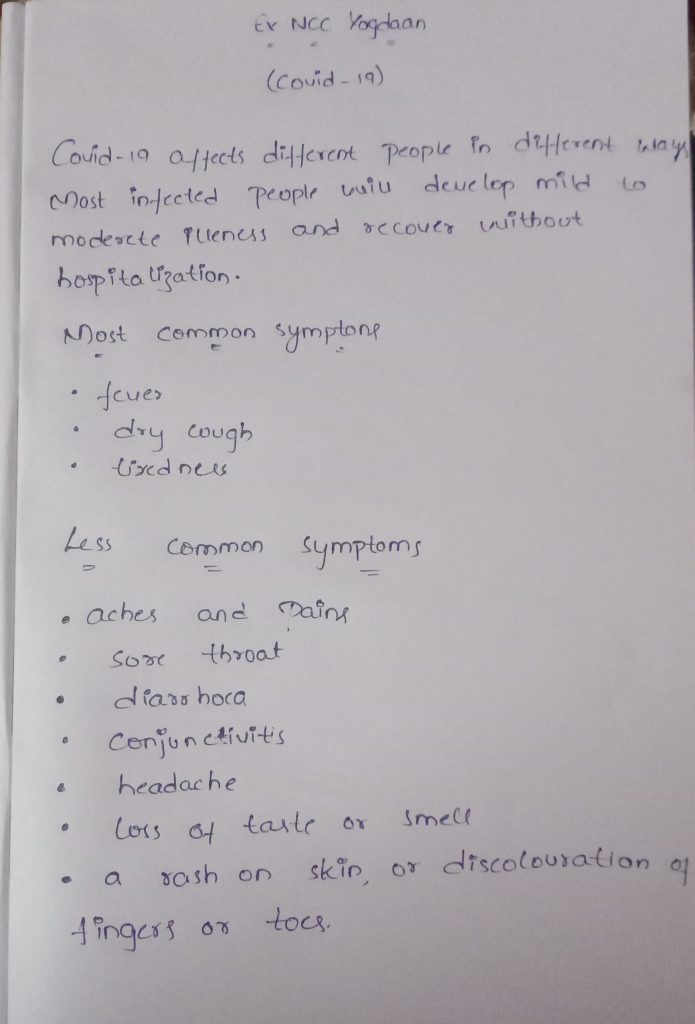 Ex NCC Yogdaan
(Covid-19)
Covid-19 affects different people in different ways
Most infected people will develop mild to
moderete illeness and recover without
hospitalization.
Most common symptons
• fever
• dry cough
• tiredness
Less common symptoms
• aches and pains
• sore throat
• diarrhoea
• conjunctivitis
• headache
• loss of taste or smell
• a rash on skin, or discolouration of
fingers or toes.